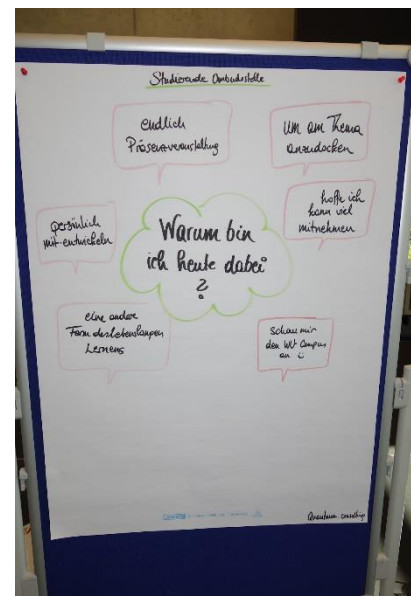 Studierende Ombudsstelle
endlich
Präsenzveranstaltung
Um am Thema
anzudocken
hoffe ich
kann viel
mitnehmen
persönlich
mit-entwickeln
Warum bin
ich heute dabei
?
eine andere
Form des lebenslangen
Lernens
schau mir
den WU Campus
an
consulting